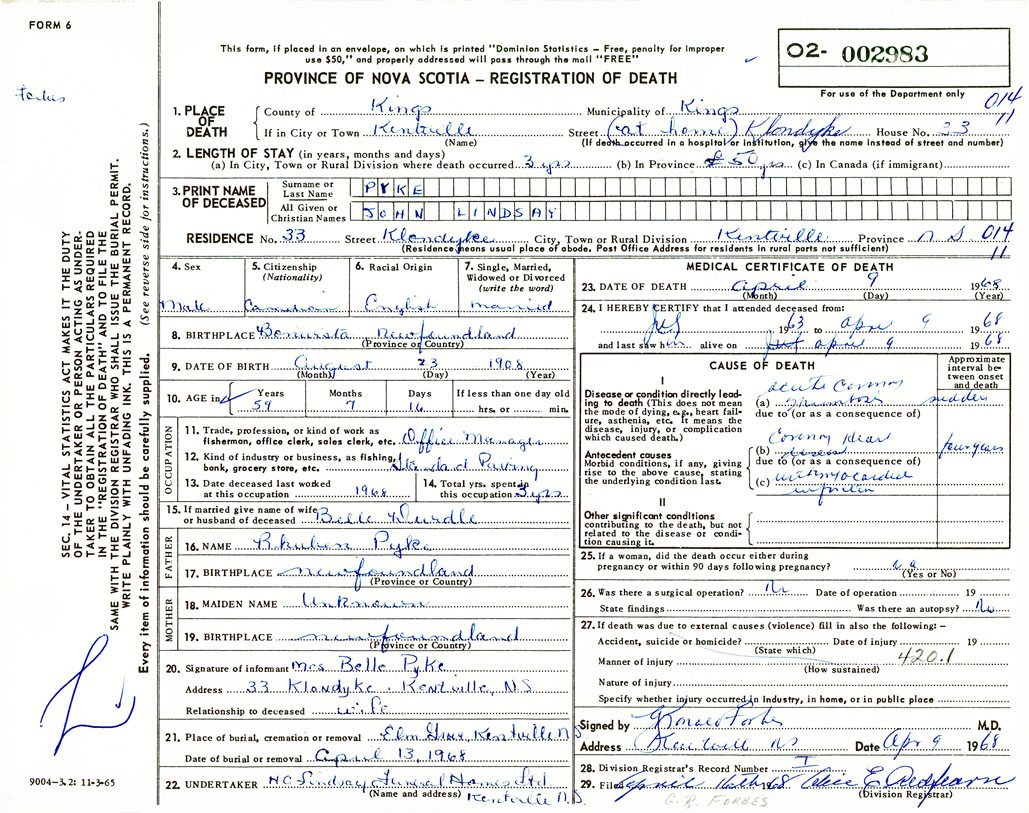 FORM 6
This form, if placed in an envelope, on which is printed "Dominion Statistics – Free, penalty for improper
use $50," and properly addressed will pass through the mail "FREE"
PROVINCE OF NOVA SCOTIA – REGISTRATION OF DEATH
02- 002983
For use of the Department only
Forbes
014
11
1. PLACE OF DEATH
County of Kings Municipality of Kings
If in City or Town Kentville Street (at home) Klondyke House No. 33
(Name) (If death occurred in a hospital or institution, give the name instead of street and number)
2. LENGTH OF STAY (in years, months and days)
(a) In City, Town or Rural Division where death occurred 3 yrs (b) In Province 50 yrs (c) In Canada (if immigrant)
3. PRINT NAME OF DECEASED
Surname or Last Name PYKE
All Given or Christian Names JOHN LINDSAY
RESIDENCE No. 33 Street Klondyke City, Town or Rural Division Kentville Province N S 014
11
(Residence means usual place of abode. Post Office Address for residents in rural parts not sufficient)
4. Sex
Male
5. Citizenship
(Nationality)
Canadian
6. Racial Origin
English
7. Single, Married,
Widowed or Divorced
(write the word)
Married
8. BIRTHPLACE Bonavista Newfoundland
(Province or Country)
9. DATE OF BIRTH August 23 1908
(Month) (Day) (Year)
10. AGE in
Years Months Days If less than one day old
59 7 16 hrs. or min.
OCCUPATION
11. Trade, profession, or kind of work as
fisherman, office clerk, sales clerk, etc. Office Manager
12. Kind of industry or business, as fishing,
bank, grocery store, etc. Standard Paving
13. Date deceased last worked
at this occupation 1968
14. Total yrs. spent in
this occupation 3 yrs
15. If married give name of wife
or husband of deceased Belle Durdle
FATHER
16. NAME Rhuben Pyke
17. BIRTHPLACE Newfoundland
(Province or Country)
MOTHER
18. MAIDEN NAME Unknown
19. BIRTHPLACE Newfoundland
(Province or Country)
20. Signature of informant Mrs Belle Pyke
Address 33 Klondyke. Kentville, N.S
Relationship to deceased wife
21. Place of burial, cremation or removal Elm Grove, Kentville N S
Date of burial or removal April 13, 1968
22. UNDERTAKER H C Lindsay Funeral Homes Ltd
(Name and address) Kentville N.S.
MEDICAL CERTIFICATE OF DEATH
23. DATE OF DEATH April 9 1968
(Month) (Day) (Year)
24. I HEREBY CERTIFY that I attended deceased from:
1963 to April 9 1968
and last saw him alive on April 9 1968
CAUSE OF DEATH
Approximate
interval be-
tween onset
and death
I
Disease or condition directly lead-
ing to death (This does not mean
the mode of dying, e.g., heart fail-
ure, asthenia, etc. It means the
disease, injury, or complication
which caused death.)
acute coronary
(a) thrombosis sudden
due to (or as a consequence of)
Antecedent causes
Morbid conditions, if any, giving
rise to the above cause, stating
the underlying condition last.
Coronary Heart
(b) disease four years
due to (or as a consequence of)
(c) with myocardial
infarction
II
Other significant conditions
contributing to the death, but not
related to the disease or condi-
tion causing it.
25. If a woman, did the death occur either during
pregnancy or within 90 days following pregnancy? n a
(Yes or No)
26. Was there a surgical operation? No Date of operation 19
State findings Was there an autopsy? No
27. If death was due to external causes (violence) fill in also the following: –
Accident, suicide or homicide? Date of injury 19
(State which)
420.1
Manner of injury
(How sustained)
Nature of injury
Specify whether injury occurred in industry, in home, or in public place
Signed by G Ronald Forbes M.D.
Address Kentville NS Date Apr 9 1968
28. Division Registrar's Record Number
29. Filed April 1968 Alice E. Redfearn
(Division Registrar)
G. R. FORBES
SEC. 14 – VITAL STATISTICS ACT MAKES IT THE DUTY
OF THE UNDERTAKER OR PERSON ACTING AS UNDER-
TAKER TO OBTAIN ALL THE PARTICULARS REQUIRED
IN THE "REGISTRATION OF DEATH" AND TO FILE THE
SAME WITH THE DIVISION REGISTRAR WHO SHALL ISSUE THE BURIAL PERMIT.
WRITE PLAINLY WITH UNFADING INK. THIS IS A PERMANENT RECORD.
Every item of information should be carefully supplied. (See reverse side for instructions.)
9004-3.2: 11-3-65